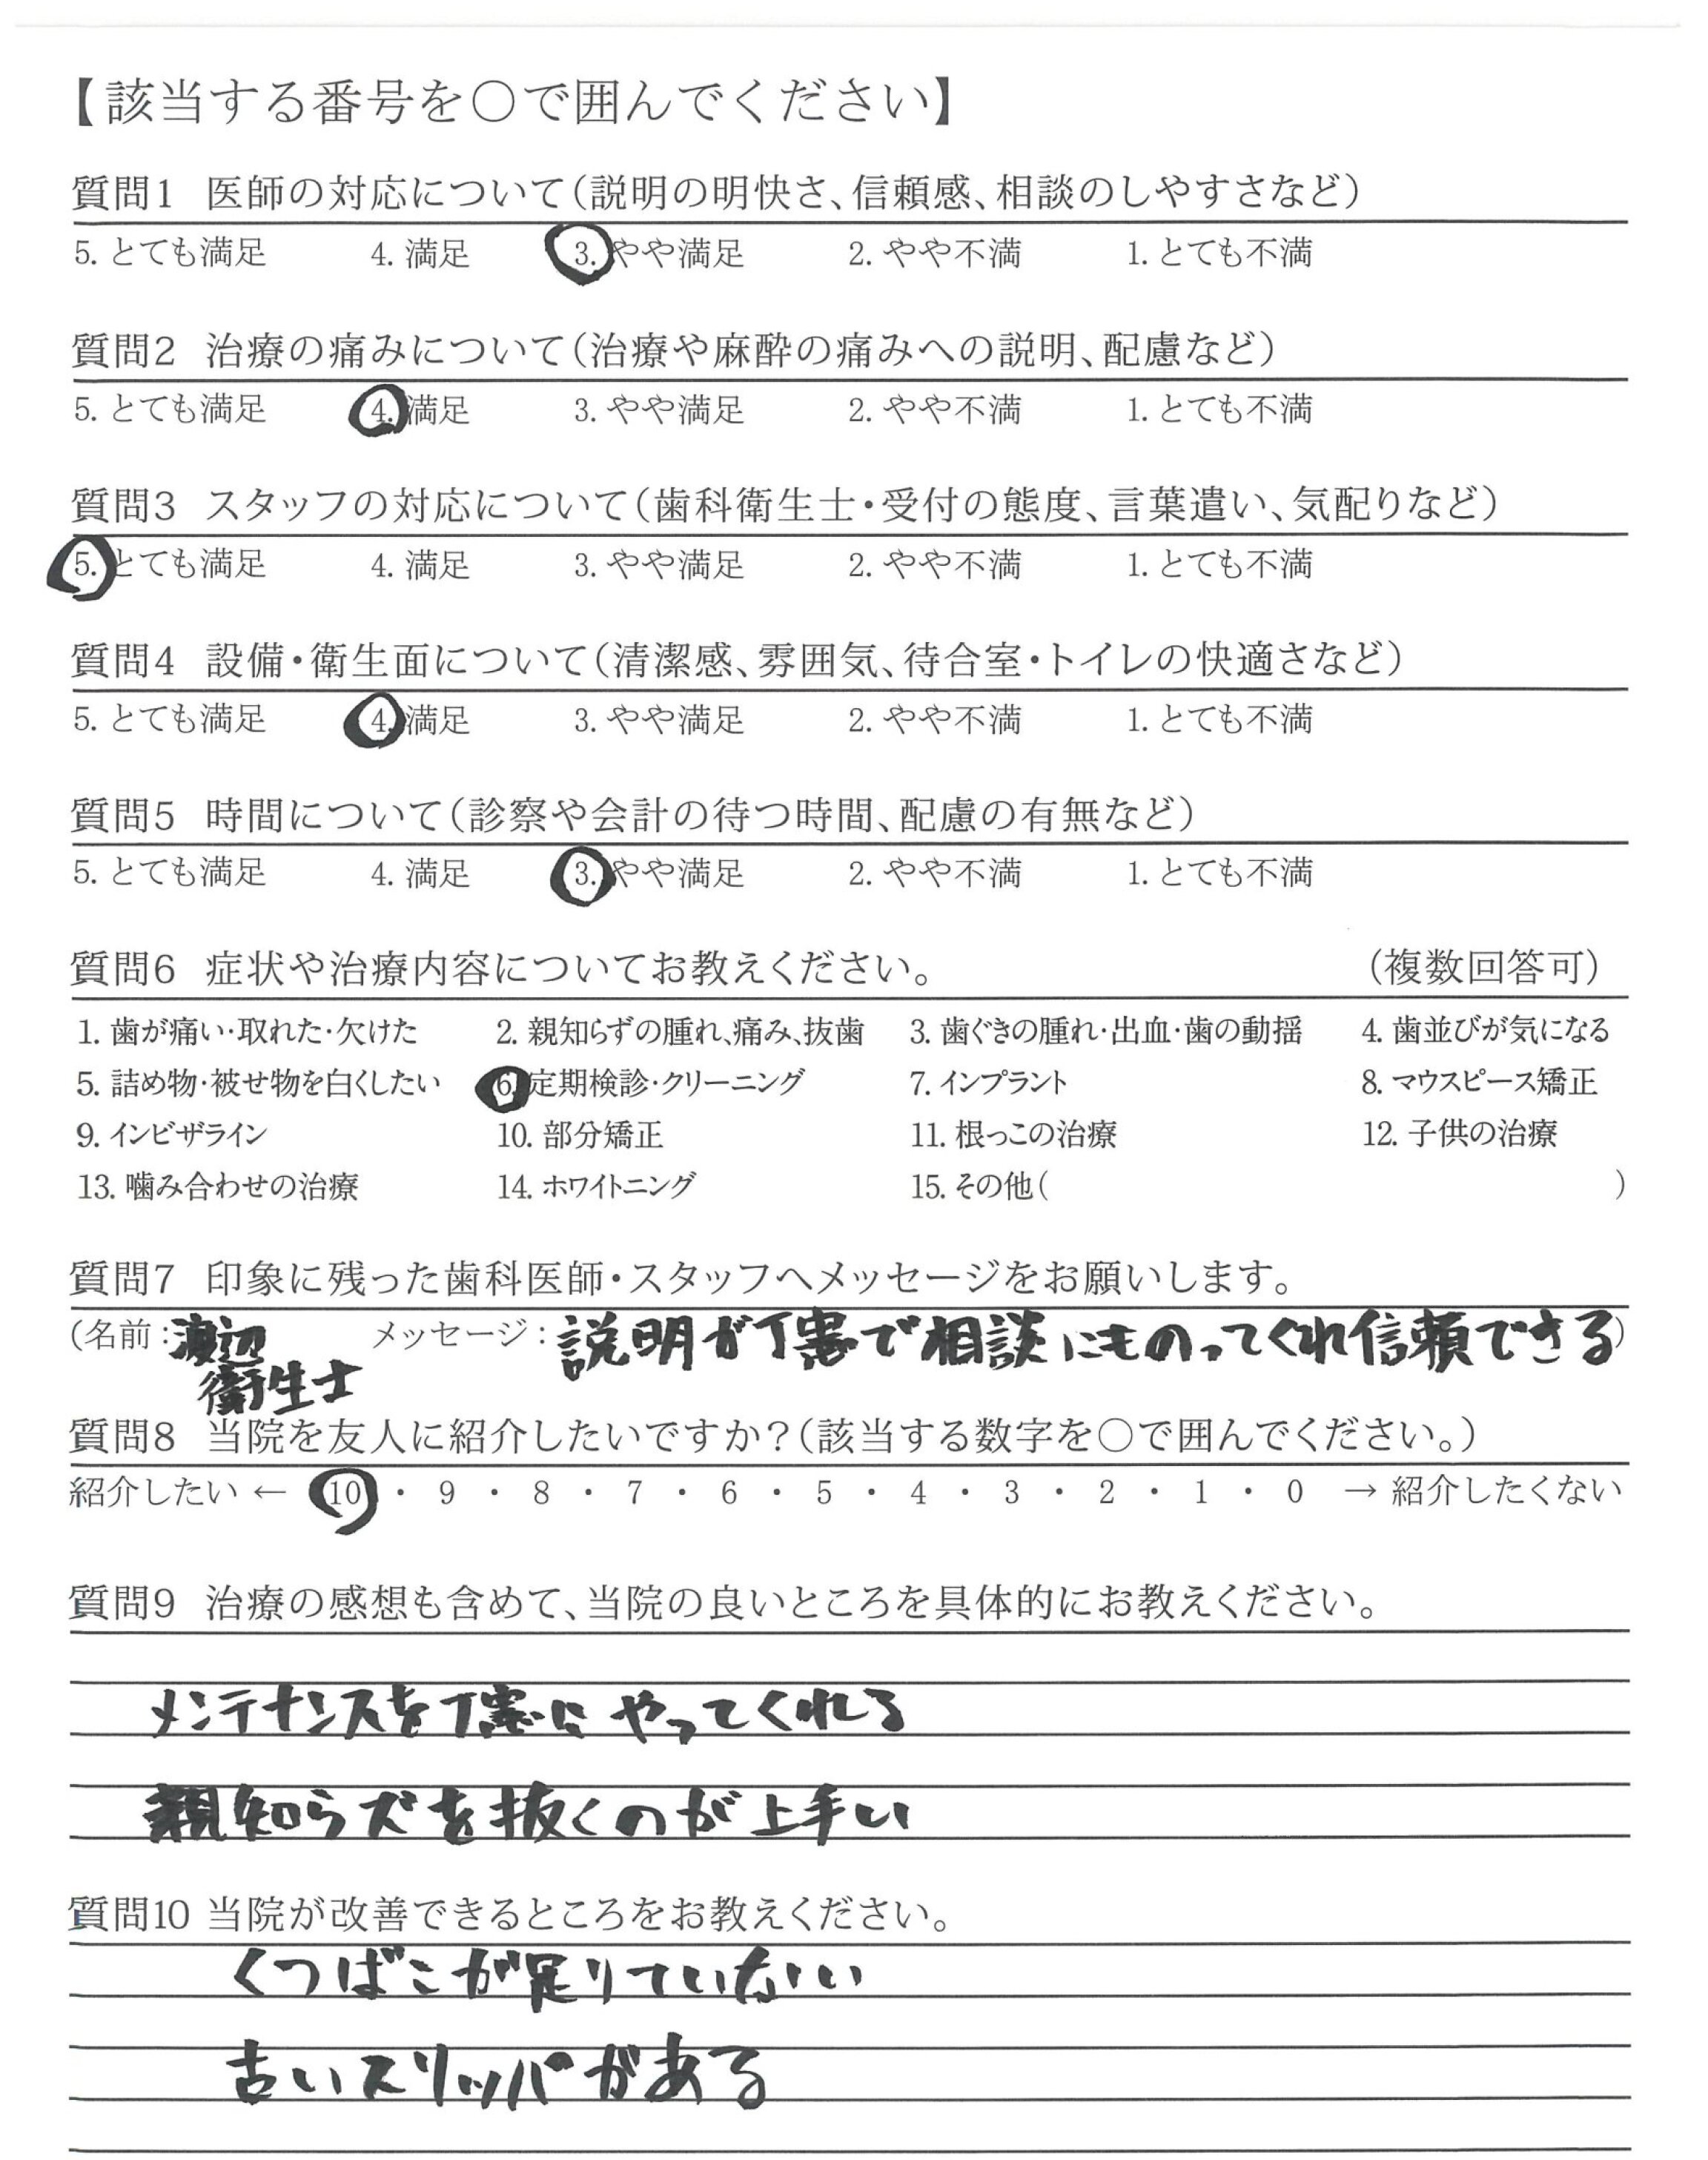 【該当する番号を○で囲んでください】
質問1 医師の対応について(説明の明快さ、信頼感、相談のしやすさなど)
5. とても満足 4. 満足 3. やや満足 2. やや不満 1. とても不満
質問2 治療の痛みについて(治療や麻酔の痛みへの説明、配慮など)
5. とても満足 4. 満足 3. やや満足 2. やや不満 1. とても不満
質問3 スタッフの対応について(歯科衛生士・受付の態度、言葉遣い、気配りなど)
5. とても満足 4. 満足 3. やや満足 2. やや不満 1. とても不満
質問4 設備・衛生面について(清潔感、雰囲気、待合室・トイレの快適さなど)
5. とても満足 4. 満足 3. やや満足 2. やや不満 1. とても不満
質問5 時間について(診察や会計の待つ時間、配慮の有無など)
5. とても満足 4. 満足 3. やや満足 2. やや不満 1. とても不満
質問6 症状や治療内容についてお教えください。 (複数回答可)
1. 歯が痛い・取れた・欠けた 2. 親知らずの腫れ、痛み、抜歯 3. 歯ぐきの腫れ・出血・歯の動揺 4. 歯並びが気になる
5. 詰め物・被せ物を白くしたい 6. 定期検診・クリーニング 7. インプラント 8. マウスピース矯正
9. インビザライン 10. 部分矯正 11. 根っこの治療 12. 子供の治療
13. 噛み合わせの治療 14. ホワイトニング 15. その他( )
質問7 印象に残った歯科医師・スタッフへメッセージをお願いします。
(名前:渡辺 メッセージ:説明が丁寧で相談にものってくれ信頼できる)
衛生士
質問8 当院を友人に紹介したいですか?(該当する数字を○で囲んでください。)
紹介したい ← 10 ・ 9 ・ 8 ・ 7 ・ 6 ・ 5 ・ 4 ・ 3 ・ 2 ・ 1 ・ 0 → 紹介したくない
質問9 治療の感想も含めて、当院の良いところを具体的にお教えください。
メンテナンスを丁寧にやってくれる
親知らズを抜くのが上手い
質問10 当院が改善できるところをお教えください。
くつばこが足りていない
古いスリッパがある